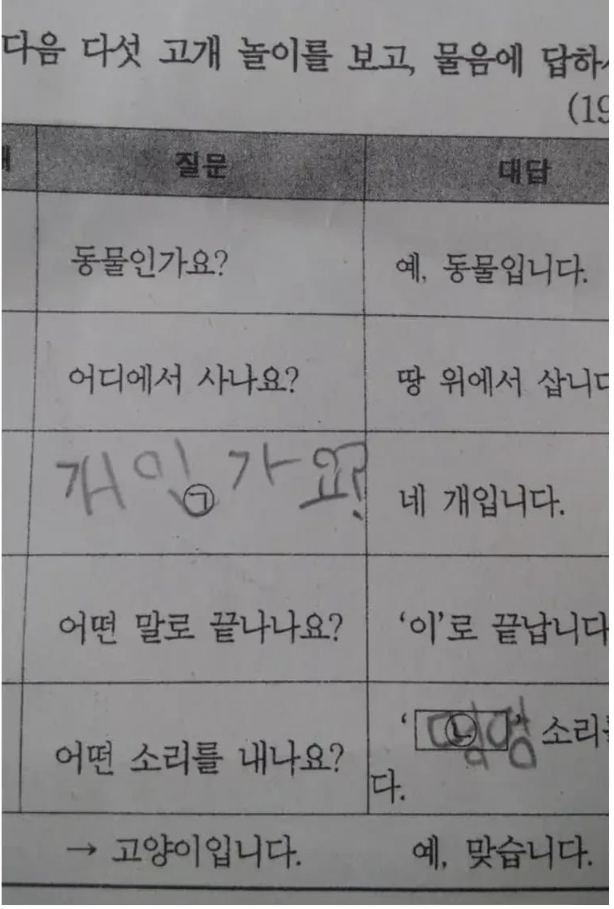 다음 다섯 고개 놀이를 보고, 물음에 답하
(19
질문 대답
동물인가요? 예, 동물입니다.
어디에서 사나요? 땅 위에서 삽니다
개인가요? ㉠ 네 개입니다.
어떤 말로 끝나나요? ‘이’로 끝납니다
어떤 소리를 내나요? ‘㉡ ’ 소리를
다.
→ 고양이입니다. 예, 맞습니다.